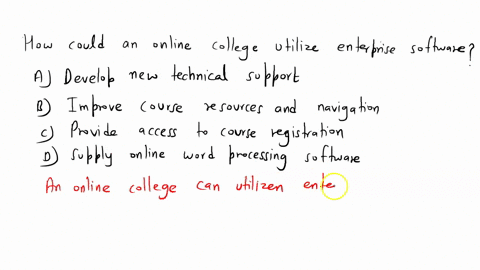 How could an online college utilize enterprise software?
A) Develop new technical support
B) Improve course resources and navigation
C) Provide access to course registration
D) Supply online word processing software
An online college can utilizen ente